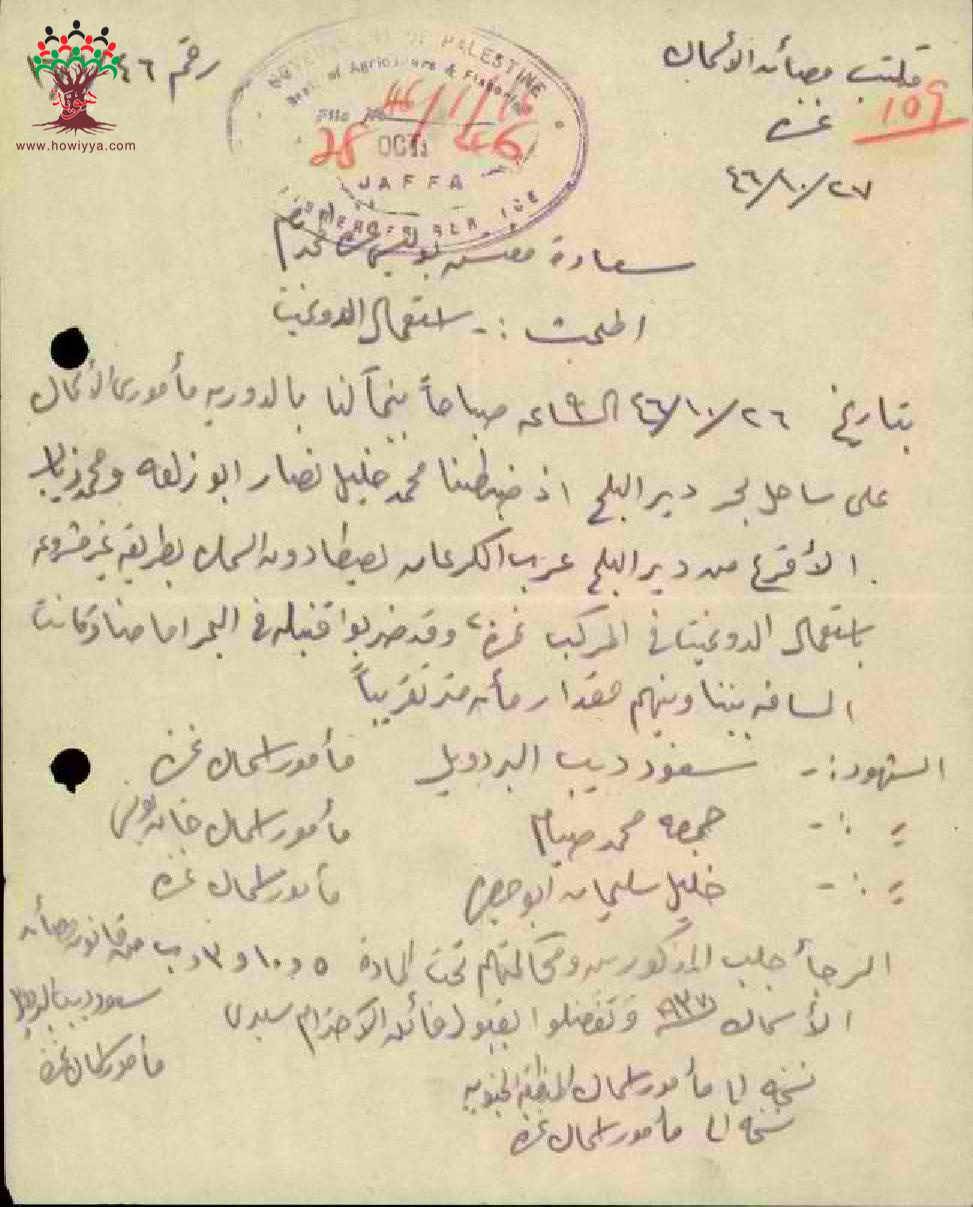 مكتب مصائد الأسماك
رقم ٤٦
109
غزه
٤٦/١٠/٢٧
GOVERNMENT OF PALESTINE
Dept. of Agriculture & Fisheries
File No. 46/1/16
28 OCT 46
JAFFA
FISHERIES SERVICE
www.howiyya.com
سعادة مفتش بوليس المحترم
المبحث :- استعمال الدونميت
بتاريخ ٤٦/١٠/٢٦ الساعه ٩ صباحاً بينما كنا بالدوريه مأموري الأسماك
على ساحل بحر دير البلح اذ ضبطنا محمد خليل نصار ابو زلعه ومحمد ذياب
الأقرع من دير البلح عرب الكرعان يصطادون السمك بطريقة غير مشروعه
باستعمال الدونميت في المركب غزة، وقد ضربوا قنبله في البحر امامنا وكانت
المسافه بيننا وبينهم مقدار مأة متر تقريباً
الشهود :- سعود ديب البردويل مأمور اسماك غزه
" :- جمعه محمد صيام مأمور اسماك خانيونس
" :- خليل سليمان ابو مأمور اسماك غزه
الرجأ جلب المذكورين ومحاكمتهم تحت المادة ٥ و ١٠ و ٣ و ب من قانون مصائد
الأسماك ٩٣٧ وتفضلوا بقبول فائق الاحترام سيدي
سعود ديب البردويل
مأمور اسماك غزه
نسخه الى مأمور اسماك المنطقه الجنوبيه
نسخه الى مأمور اسماك غزه